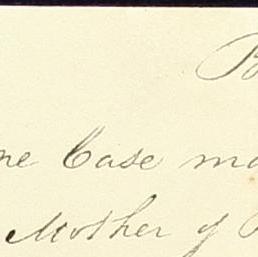 B
ne Case ma
Mother of